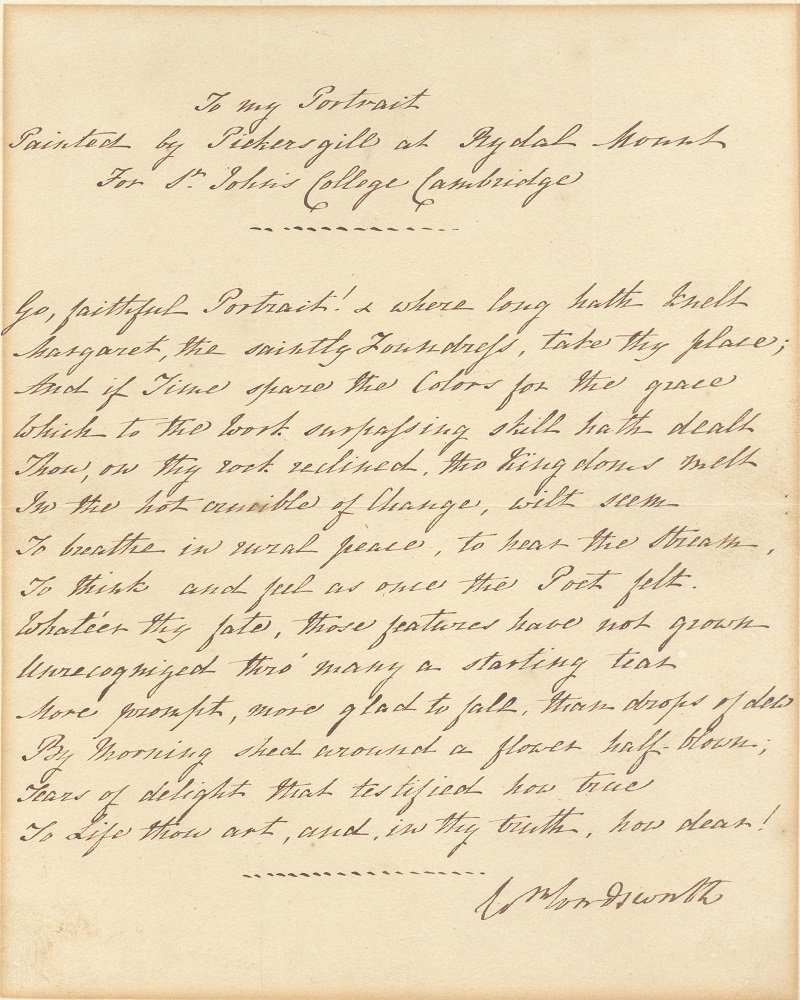 To my Portrait
Painted by Pickersgill at Rydal Mount
For St. John's College Cambridge
Go, faithful Portrait! & where long hath knelt
Margaret, the saintly Foundress, take thy place;
And if Time spare the Colors for the grace
Which to the Work surpassing skill hath dealt
Thou, on thy rock reclined, tho Kingdoms melt
In the hot crucible of Change, wilt seem
To breathe in rural peace, to hear the Stream,
To think and feel as once the Poet felt.
Whate'er thy fate, those features have not grown
Unrecognized thro' many a starting tear
More prompt, more glad to fall, than drops of dew
By Morning shed around a flower half-blown;
Tears of delight that testified how true
To Life thou art, and, in thy truth, how dear!
Wm Wordsworth